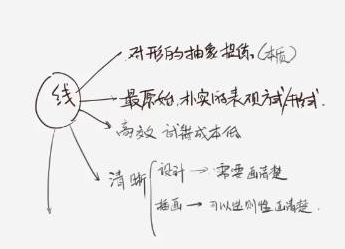 对形的抽象提炼(本质)
线
最原始、朴实的表现方式/形式.
高效 试错成本低
清晰
设计 → 需要画清楚
插画 → 可以选择性画清楚.